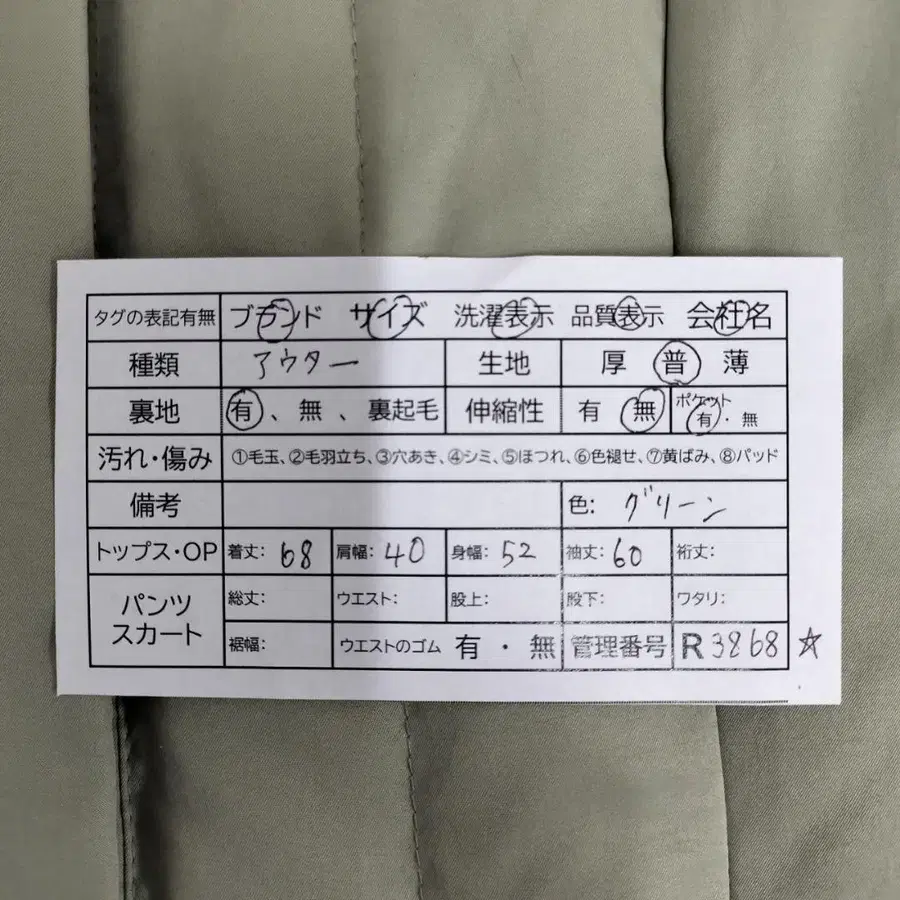 タグの表記有無 ブランド サイズ 洗濯表示 品質表示 会社名
種類 アウター 生地 厚 普 薄
裏地 有、無、裏起毛 伸縮性 有 無 ポケット 有・無
汚れ・傷み ①毛玉、②毛羽立ち、③穴あき、④シミ、⑤ほつれ、⑥色褪せ、⑦黄ばみ、⑧パッド
備考 色: グリーン
トップス・OP 着丈: 68 肩幅: 40 身幅: 52 袖丈: 60 裄丈:
パンツ スカート 総丈: ウエスト: 股上: 股下: ワタリ:
裾幅: ウエストのゴム 有・無 管理番号 R3868 ☆